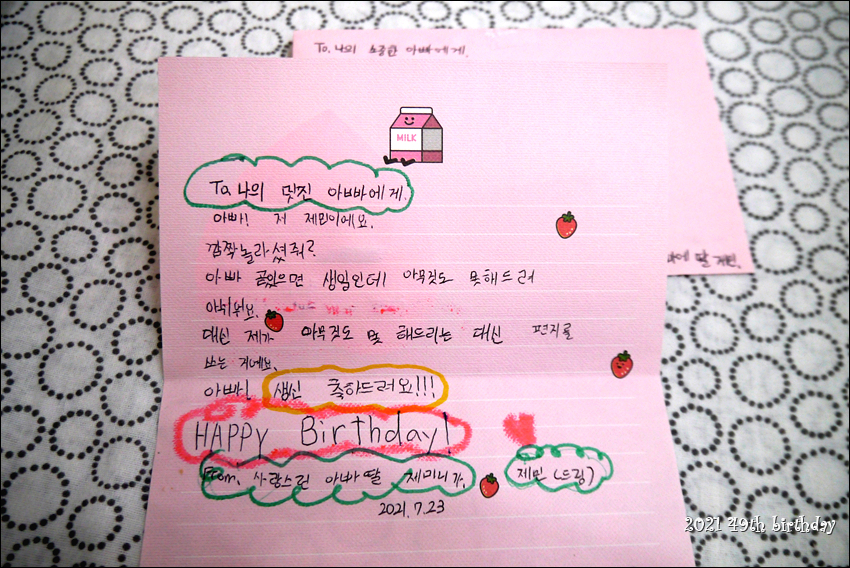 To. 나의 소중한 아빠에게.
MILK
To. 나의 멋진 아빠에게.
아빠! 저 제민이에요.
깜짝놀라셨줘?
아빠 곧있으면 생일인데 아무것도 못해드려
아쉬워요.
대신 제가 아무것도 못 해드리는 대신 편지를
쓰는 거에요.
아빠! 생신 축하드려요!!!
HAPPY Birthday!
From. 사랑스런 아빠딸 제미니가. 제민 (드림)
2021. 7. 23
딸
2021 49th birthday